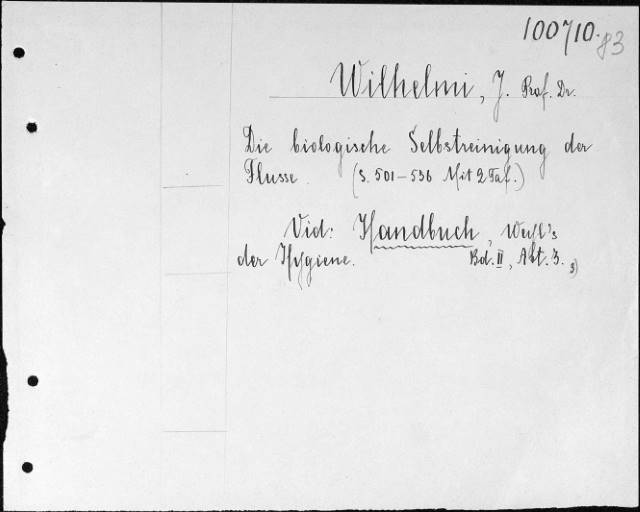 100710.
83
Wilhelmi, J. Prof. Dr.
Die biologische Selbstreinigung der
Flusse. (S. 501-536 Mit 2 Taf.)
Vid: Handbuch, Weyl's
der Hygiene. Bd. II, Abt. 3.